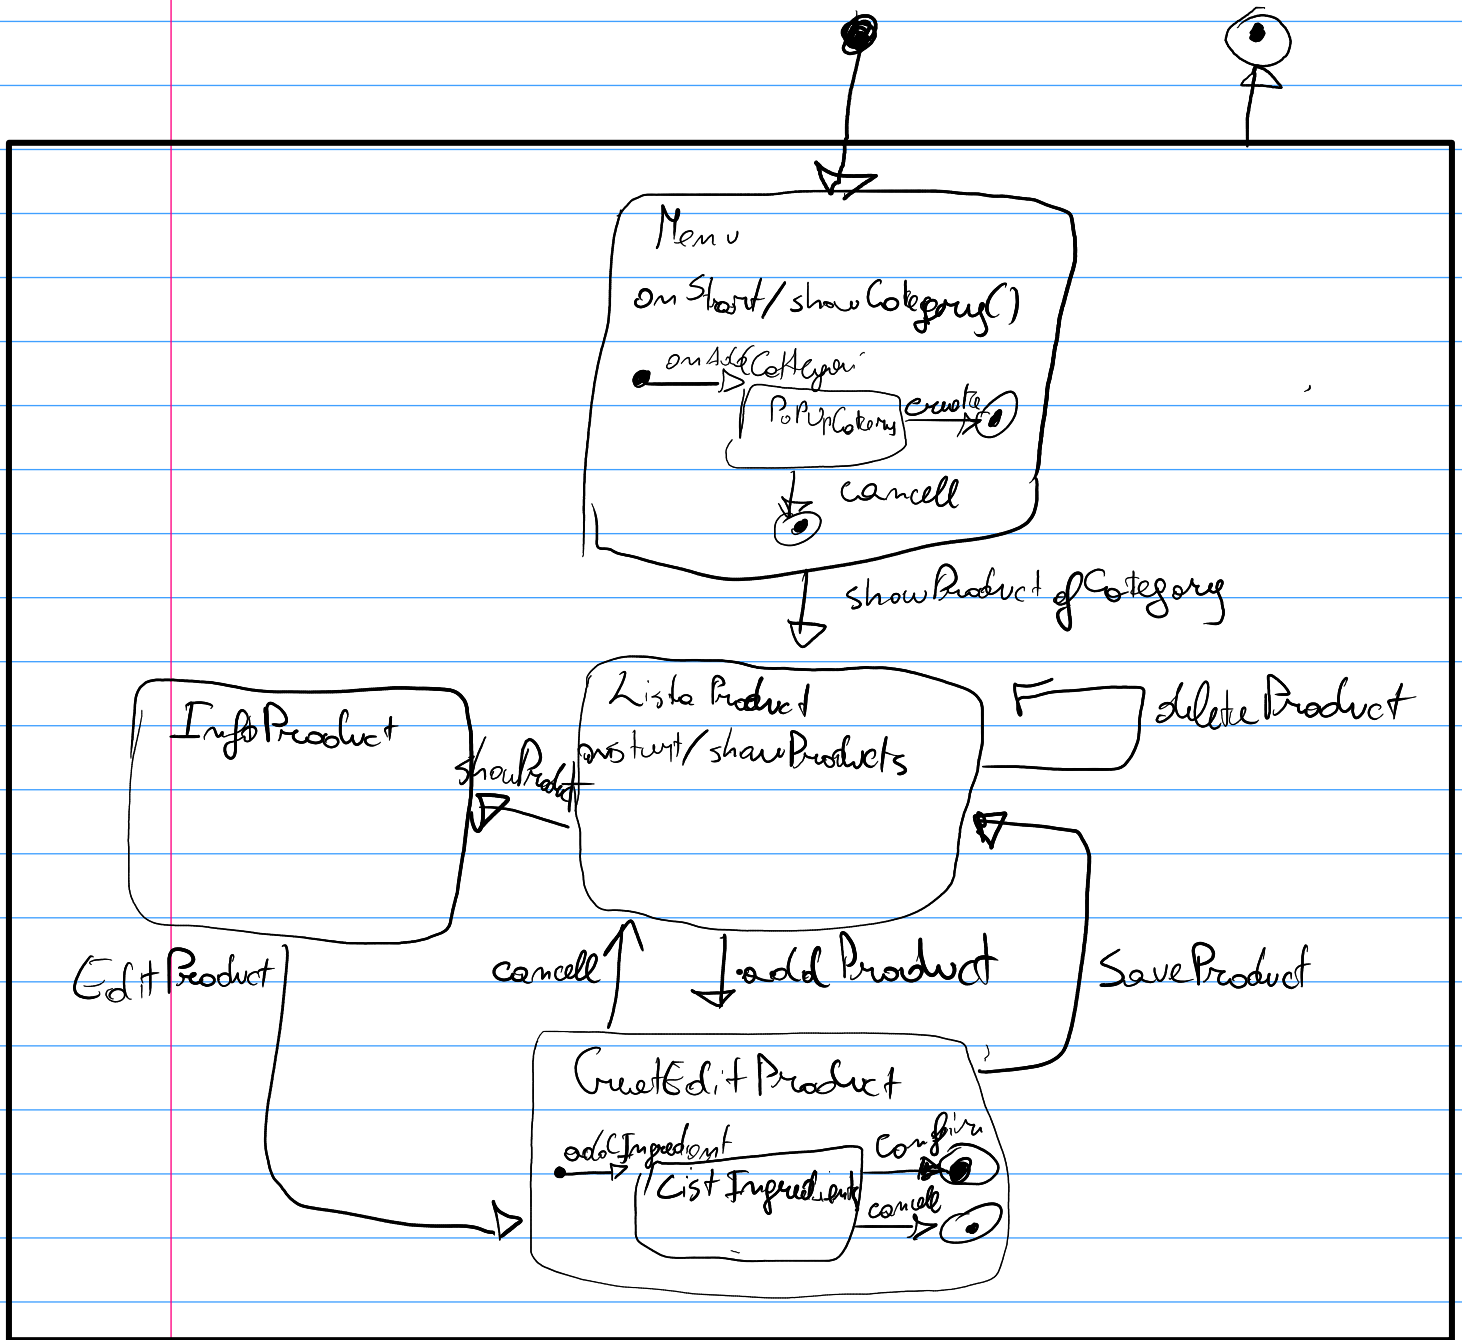 Menu
onStart/showCategory()
onAddCattegori
PopUpCategory
create
cancell
showProduct of Category
ListaProduct
onstart/showProducts
deleteProduct
InfoProduct
showProduct
EditProduct
cancell
addProduct
SaveProduct
CreatEditProduct
addIngredient
Confirm
ListIngredients
cancell